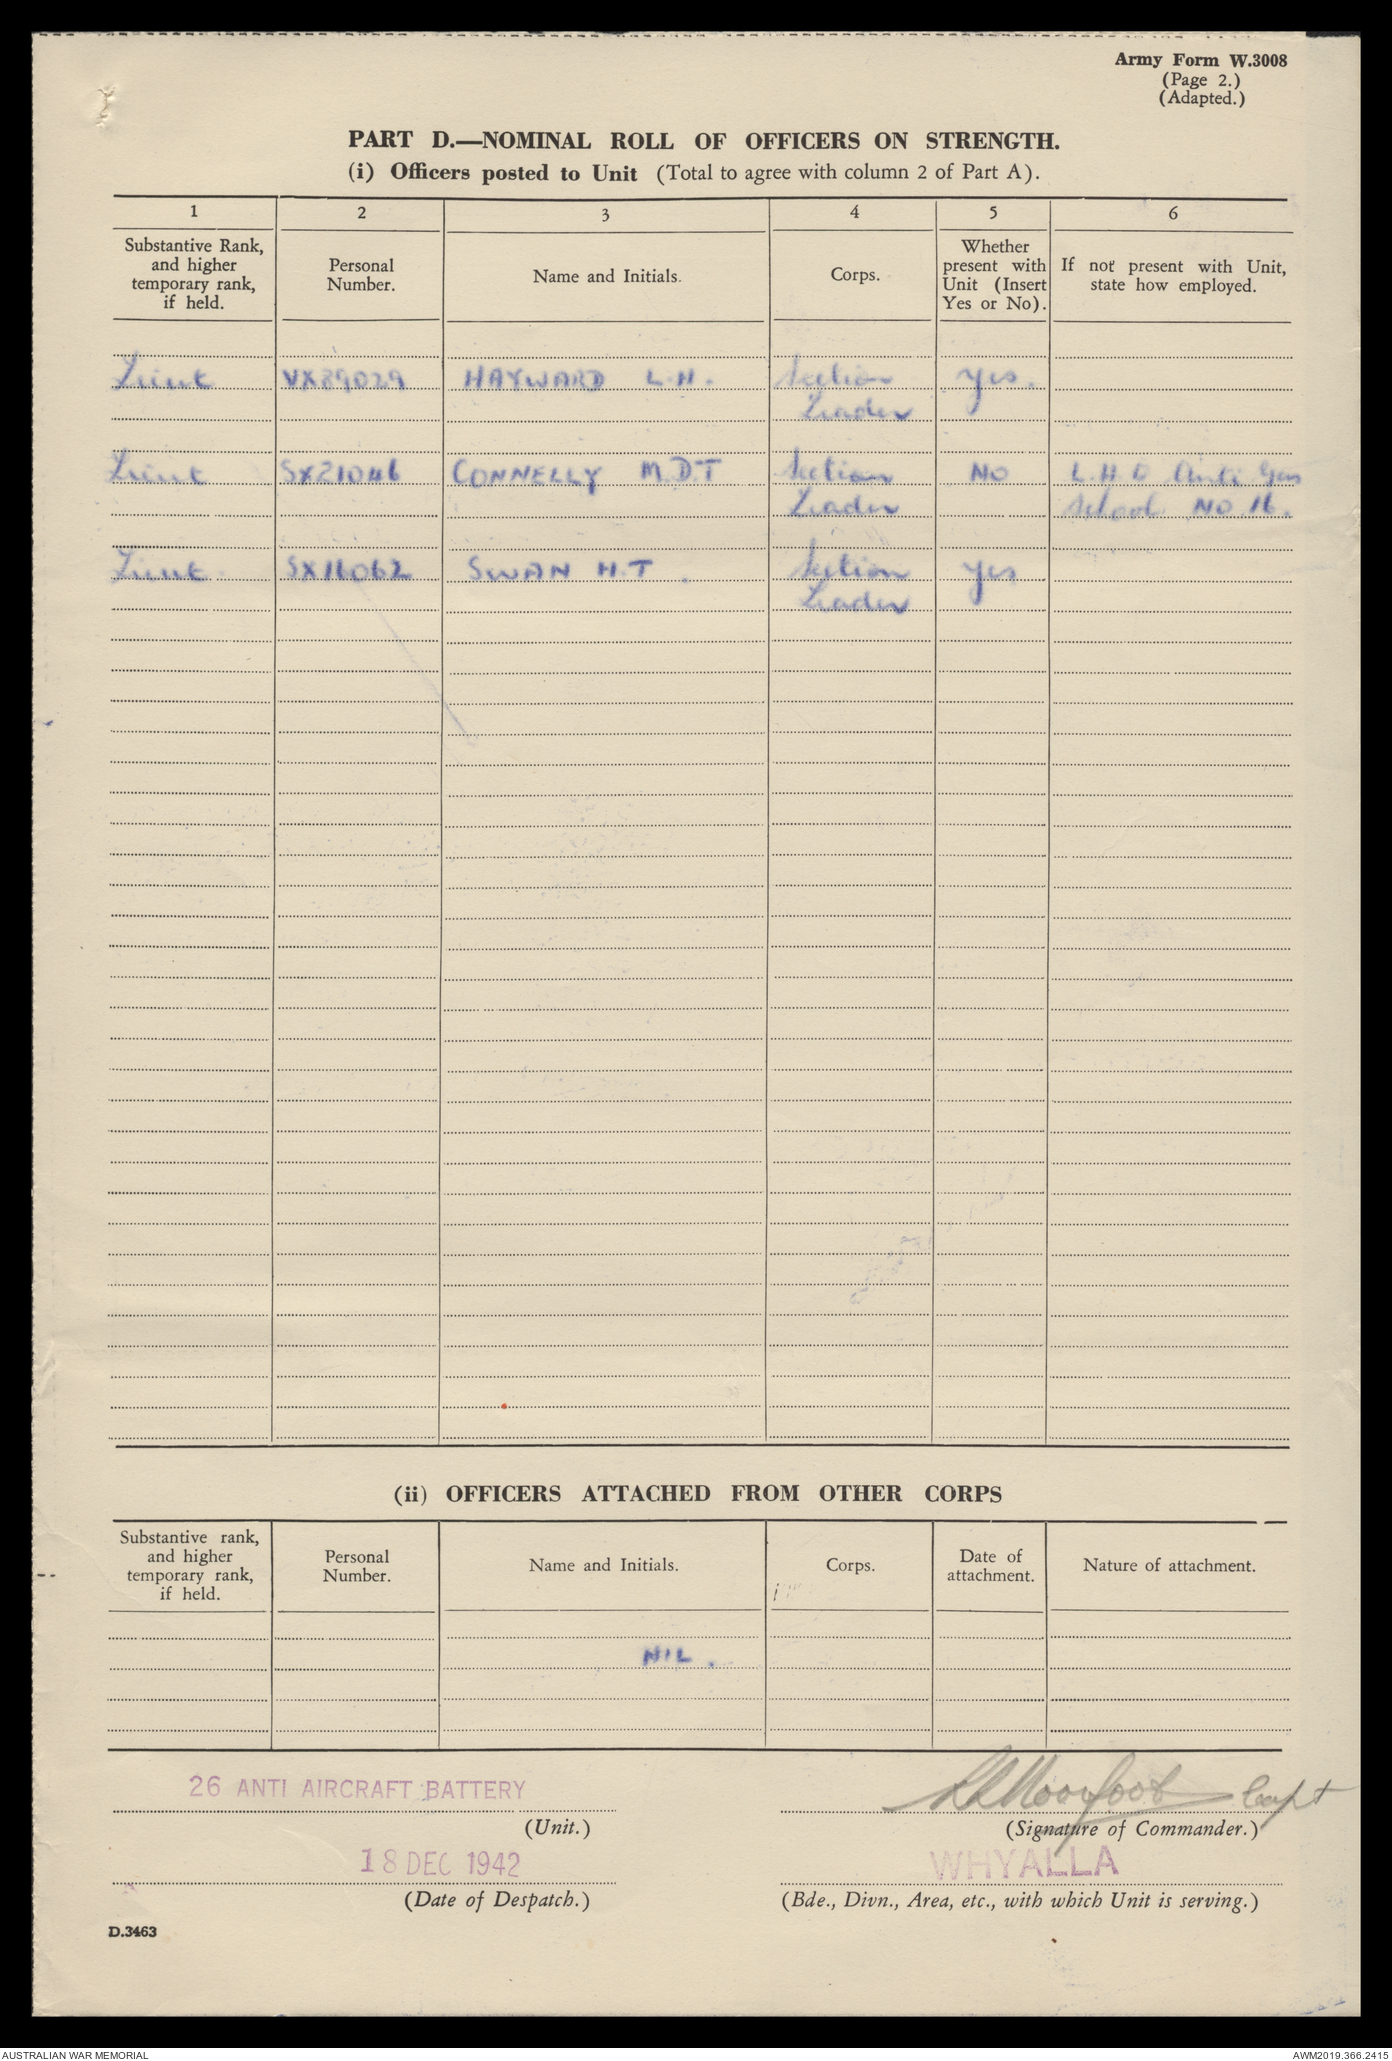 Army Form W.3008
(Page 2.)
(Adapted.)
PART D.—NOMINAL ROLL OF OFFICERS ON STRENGTH.
(i) Officers posted to Unit (Total to agree with column 2 of Part A).
1 2 3 4 5 6
Substantive Rank, and higher temporary rank, if held.
Personal Number.
Name and Initials.
Corps.
Whether present with Unit (Insert Yes or No).
If not present with Unit, state how employed.
Lieut VX89029 HAYWARD L.H. Section Yes.
Leader
Lieut SX21046 CONNELLY M.D.T Section NO L.H.Q Anti Gas
Leader School NO 16.
Lieut SX16062 SWAN H.T. Section Yes
Leader
(ii) OFFICERS ATTACHED FROM OTHER CORPS
Substantive rank, and higher temporary rank, if held.
Personal Number.
Name and Initials.
Corps.
Date of attachment.
Nature of attachment.
NIL.
26 ANTI AIRCRAFT BATTERY
Capt
(Unit.) (Signature of Commander.)
18 DEC 1942 WHYALLA
(Date of Despatch.) (Bde., Divn., Area, etc., with which Unit is serving.)
D.3463
AUSTRALIAN WAR MEMORIAL AWM2019.366.2415